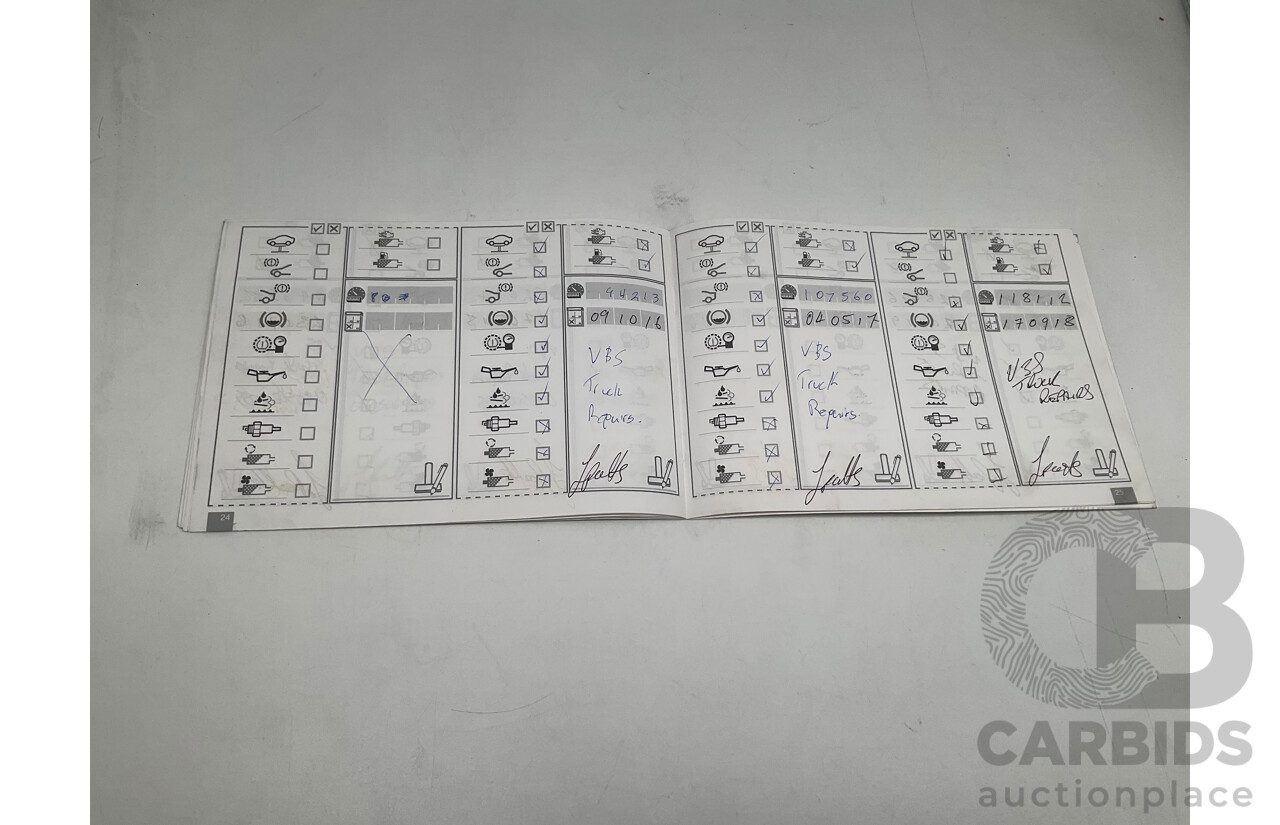 94213
091016
VBS
Truck
Repairs.
107560
040517
VBS
Truck
Repairs.
118112
170918
VBS
TRUCK
REPAIRS
24
25
CARBIDS
auctionplace